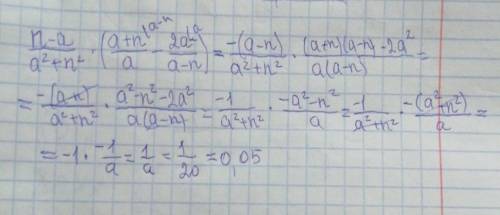 n-a/a²+n² · (a+n^(a-n)/a - 2a²^a/a-n) = -(a-n)/a²+n² · (a+n)(a-n)-2a²/a(a-n) =
= -(a-n)/a²+n² · a²-n²-2a²/a(a-n) = -1/a²+n² · -a²-n²/a = -1/a²+n² · -(a²+n²)/a =
= -1 · -1/a = 1/a = 1/20 = 0,05